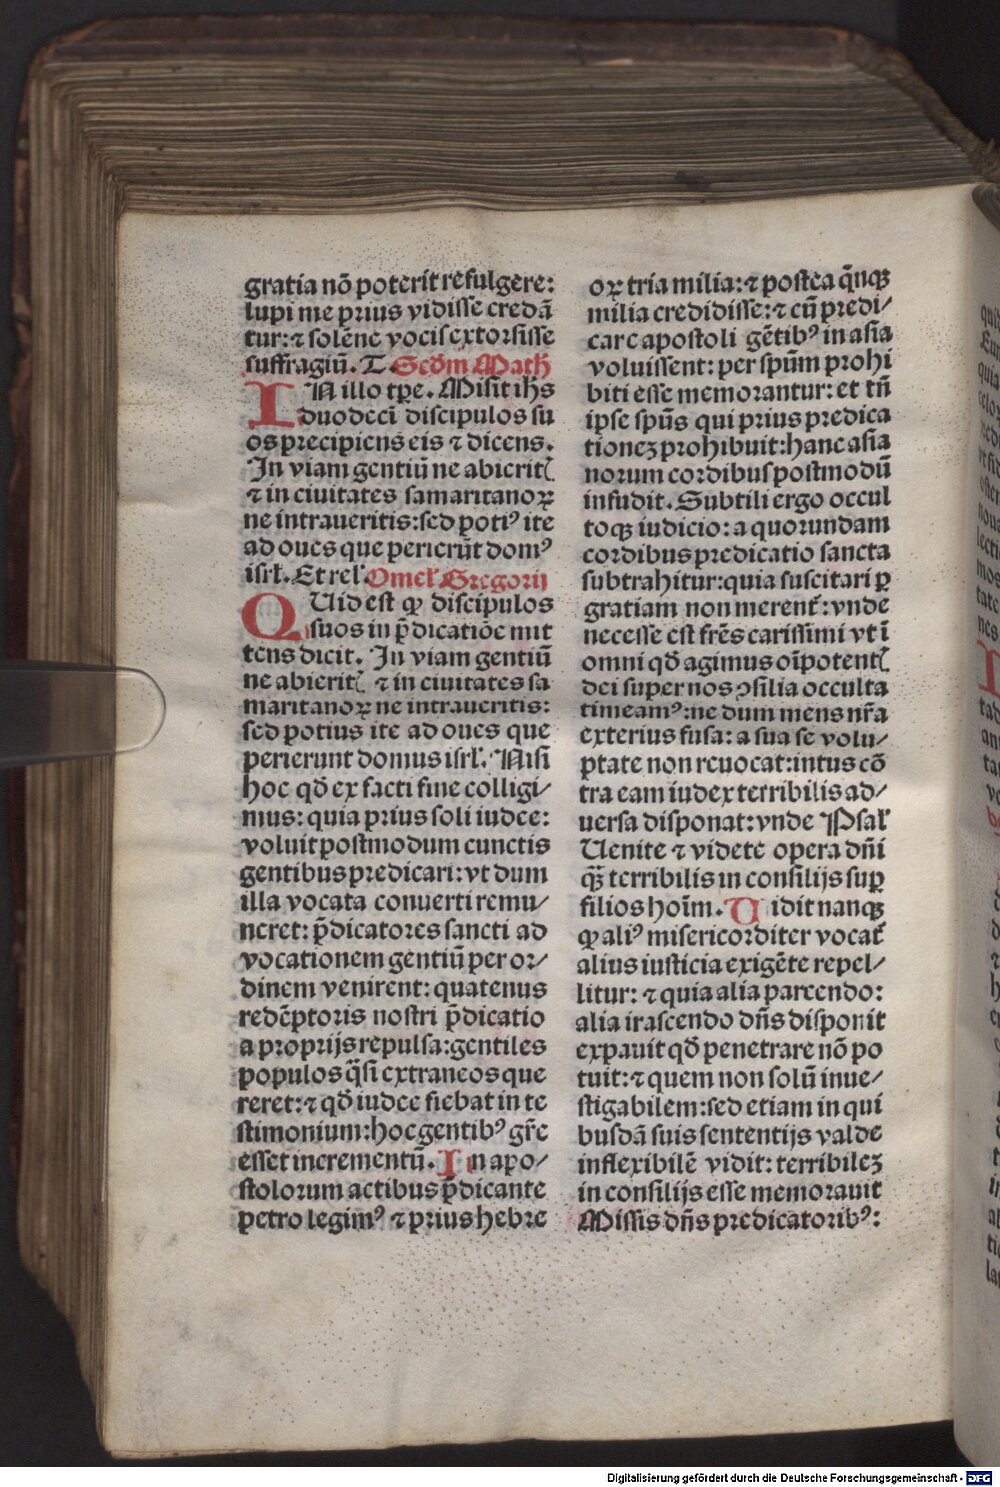 gratia nō poterit refulgere:
lupi me prius vidisse credā
tur: ⁊ solēne vocis extorsisse
suffragiū. T. Scd̄m Math̄
IN illo tp̄e. Misit ih̄s
duodecī discipulos su
os precipiens eis ⁊ dicens.
In viam gentiū ne abieritꝭ
⁊ in ciuitates samaritanoꝝ
ne intraueritis: sed potiꝰ ite
ad oues que perierūt domꝰ
isrl̄. Et rel̄. Omel̄. Gregorij
QUid est ꝙ discipulos
suos in p̄dicatiōe mit
tens dicit. In viam gentiū
ne abieritꝭ ⁊ in ciuitates sa
maritanoꝝ ne intraueritis:
sed potius ite ad oues que
perierunt domus isrl̄. Nisi
hoc qd̄ ex facti fine colligi/
mus: quia prius soli iudee:
voluit postmodum cunctis
gentibus predicari: vt dum
illa vocata conuerti remu/
neret: p̄dicatores sancti ad
vocationem gentiū per or/
dinem venirent: quatenus
redēptoris nostri p̄dicatio
a proprijs repulsa: gentiles
populos q̄si extraneos que
reret: ⁊ qd̄ iudee fiebat in te
stimonium: hoc gentibꝰ gr̄e
esset incrementū. In apo/
stolorum actibus p̄dicante
petro legimꝰ ⁊ prius hebre
oꝝ tria milia: ⁊ postea q̄nqꝫ
milia credidisse: ⁊ cū predi/
care apostoli gētibꝰ in asia
voluissent: per sp̄um prohi
biti esse memorantur: et tn̄
ipse sp̄us qui prius predica
tioneꝫ prohibuit: hanc asia
norum cordibus postmodū
infudit. Subtili ergo occul
toqꝫ iudicio: a quorundam
cordibus predicatio sancta
subtrahitur: quia suscitari ꝑ
gratiam non merent̄: vnde
necesse est fr̄es carissimi vt ī
omni qd̄ agimus oīpotentꝭ
dei super nos ꝯsilia occulta
timeamꝰ: ne dum mens nr̄a
exterius fusa: a sua se volu/
ptate non reuocat: intus cō
tra eam iudex terribilis ad/
uersa disponat: vnde Psal̄
Uenite ⁊ videte opera dn̄i
qꝫ̄ terribilis in consilijs suꝑ
filios hoīm. Uidit nanqꝫ
ꝙ aliꝰ misericorditer vocat̄
alius iusticia exigēte repel/
litur: ⁊ quia alia parcendo:
alia irascendo dn̄s disponit
expauit qd̄ penetrare nō po
tuit: ⁊ quem non solū inue/
stigabilem: sed etiam in qui
busdā suis sententijs valde
inflexibilē vidit: terribileꝫ
in consilijs esse memorauit
Missis dn̄s predicatoribꝰ:
Digitalisierung gefördert durch die Deutsche Forschungsgemeinschaft - DFG